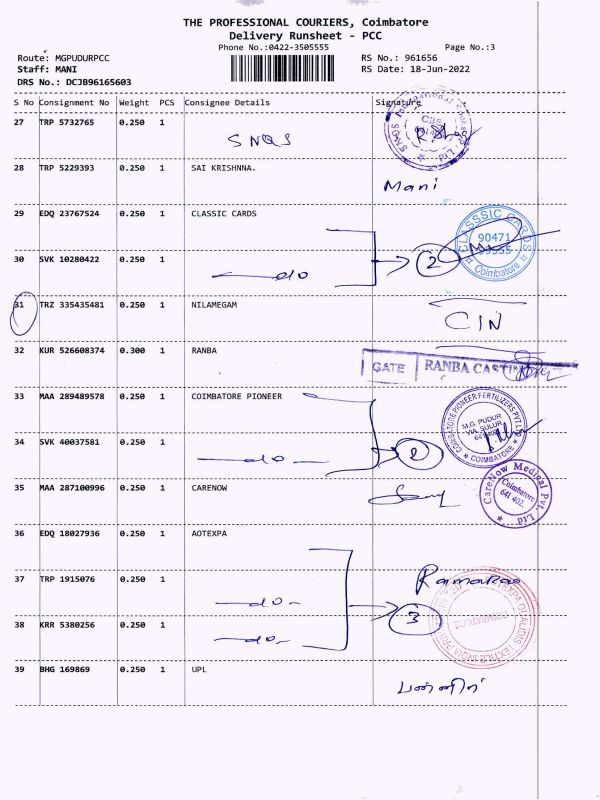 THE PROFESSIONAL COURIERS, Coimbatore
Delivery Runsheet - PCC
Phone No.:0422-3505555
Page No.:3
Route: MGPUDURPCC
RS No.: 961656
Staff: MANI
RS Date: 18-Jun-2022
DRS No.: DCJB96165603
S No Consignment No Weight PCS Consignee Details Signature
27 TRP 5732765 0.250 1
SNQS
28 TRP 5229393 0.250 1 SAI KRISHNNA.
Mani
29 EDQ 23767524 0.250 1 CLASSIC CARDS
CLASSSIC CARDS
90471
Coimbatore
30 SVK 10280422 0.250 1
do
2
31 TRZ 335435481 0.250 1 NILAMEGAM
CIN
32 KUR 526608374 0.300 1 RANBA
GATE RANBA
33 MAA 289489578 0.250 1 COIMBATORE PIONEER
COIMBATORE PIONEER FERTILIZERS PVT LTD
M.G. PUDUR
VIA. SULUR
COIMBATORE
34 SVK 40037581 0.250 1
do
2
35 MAA 287100996 0.250 1 CARENOW
CareNow Medical Pvt. Ltd
Coimbatore
641 402.
36 EDQ 18027936 0.250 1 AOTEXPA
37 TRP 1915076 0.250 1
do
3
38 KRR 5380256 0.250 1
do
39 BHG 169869 0.250 1 UPL
பன்னீர்